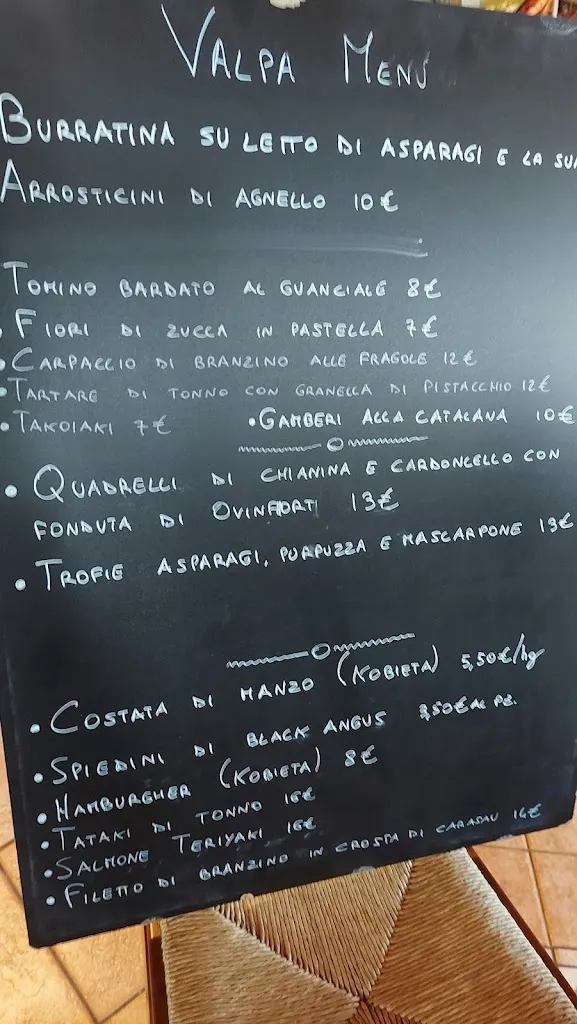 VALPA MENÙ
BURRATINA SU LETTO DI ASPARAGI E LA SUA
ARROSTICINI DI AGNELLO 10€
TOMINO BARDATO AL GUANCIALE 8€
• FIORI DI ZUCCA IN PASTELLA 7€
• CARPACCIO DI BRANZINO ALLE FRAGOLE 12€
• TARTARE DI TONNO CON GRANELLA DI PISTACCHIO 12€
• TAKOIAKI 7€ • GAMBERI ALLA CATALANA 10€
• QUADRELLI DI CHIANINA E CARDONCELLO CON
FONDUTA DI OVINFORT 13€
• TROFIE ASPARAGI, PURPUZZA E MASCARPONE 13€
• COSTATA DI MANZO (KOBIETA) 5,50€/hg
• SPIEDINI DI BLACK ANGUS 3,50€ AL PZ.
• HAMBURGHER (KOBIETA) 8€
• TATAKI DI TONNO 16€
• SALMONE TERIYAKI 16€
• FILETTO DI BRANZINO IN CROSTA DI CARASAU 14€